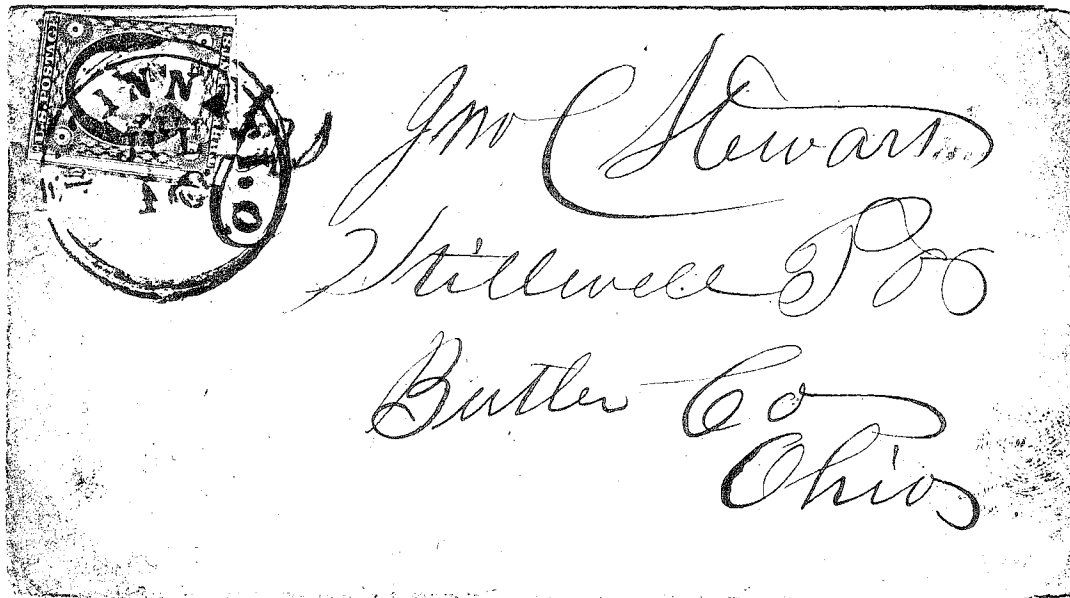 U.S. POSTAGE
INNA
JUL
O.
Jno C Stewart
Stillwell P O
Butler Co
Ohio